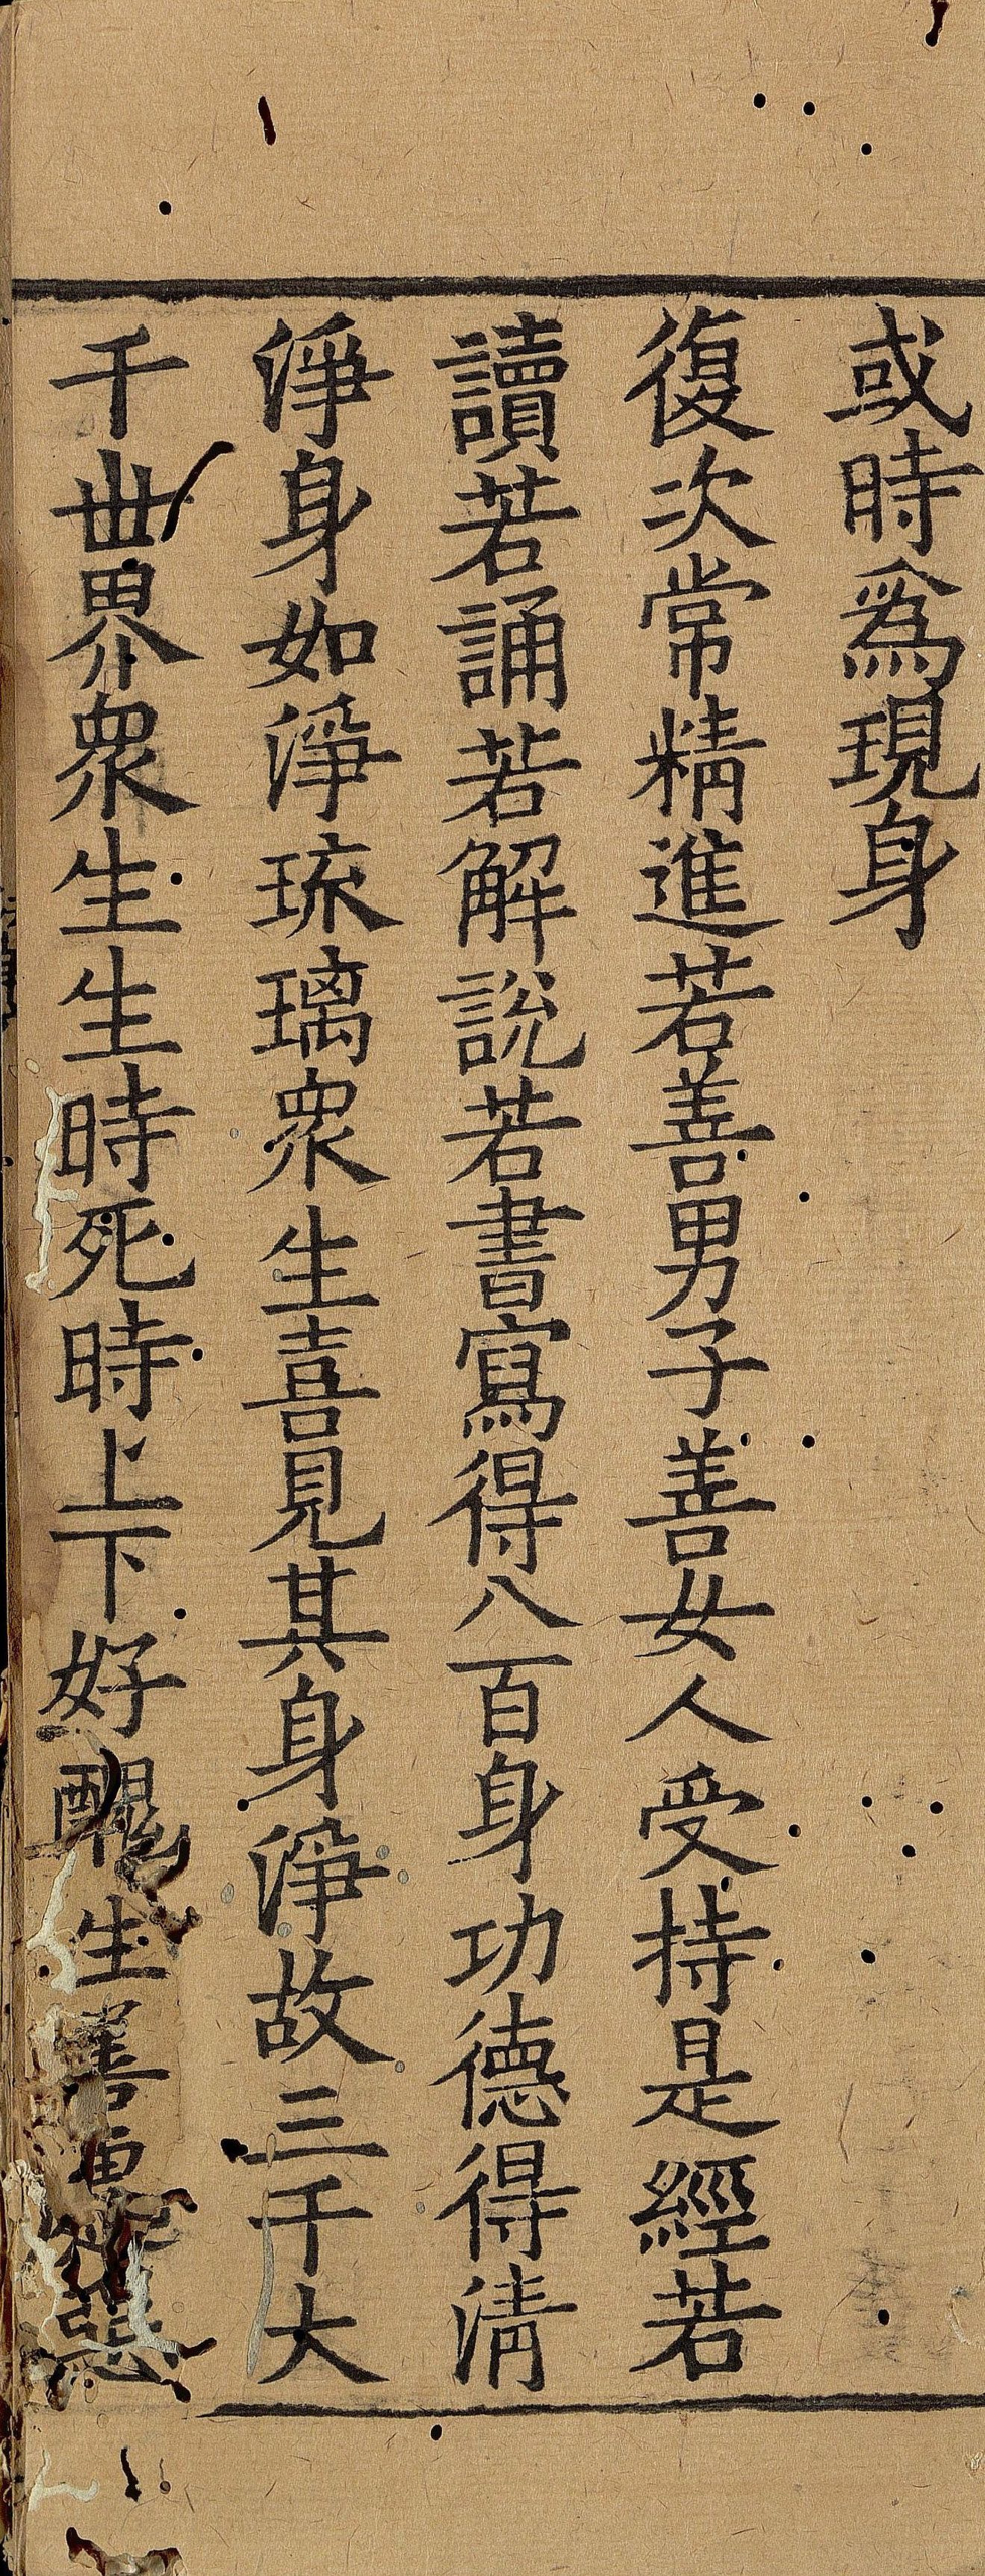 或時爲現身
復次常精進若善男子善女人受持是經若
讀若誦若解說若書寫得八百身功德得清
淨身如淨琉璃衆生喜見其身淨故三千大
千世界衆生生時死時上下好醜生善惡